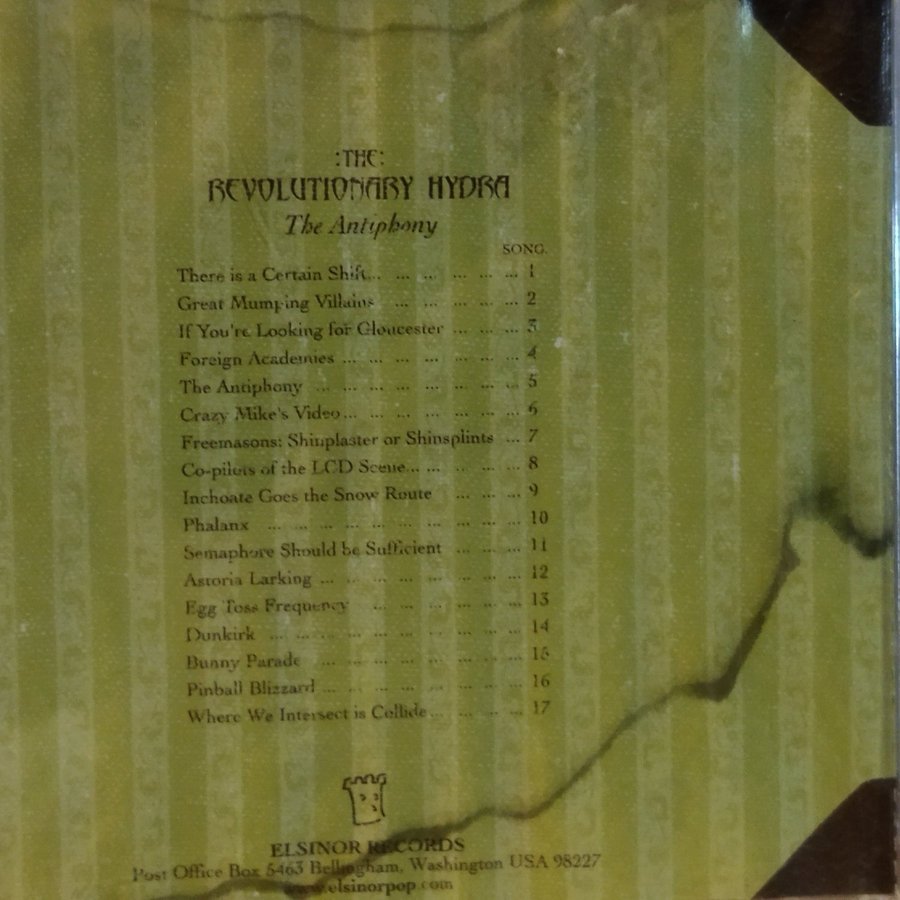 :THE:
REVOLUTIONARY HYDRA
The Antiphony
SONG.
There is a Certain Shift... ... ... ... ... ... 1
Great Mumping Villains ... ... ... ... ... 2
If You're Looking for Gloucester ... ... ... 3
Foreign Academies ... ... ... ... ... ... ... 4
The Antiphony ... ... ... ... ... ... ... ... 5
Crazy Mike's Video... ... ... ... ... ... ... 6
Freemasons: Shinplaster or Shinsplints ... 7
Co-pilots of the LCD Scene... ... ... ... ... 8
Inchoate Goes the Snow Route ... ... ... 9
Phalanx ... ... ... ... ... ... ... ... ... ... 10
Semaphore Should be Sufficient ... ... ... 11
Astoria Larking ... ... ... ... ... ... ... ... 12
Egg Toss Frequency ... ... ... ... ... ... 13
Dunkirk ... ... ... ... ... ... ... ... ... ... 14
Bunny Parade ... ... ... ... ... ... ... ... 15
Pinball Blizzard ... ... ... ... ... ... ... ... 16
Where We Intersect is Collide... ... ... ... 17
ELSINOR RECORDS
Post Office Box 5463 Bellingham, Washington USA 98227
www.elsinorpop.com